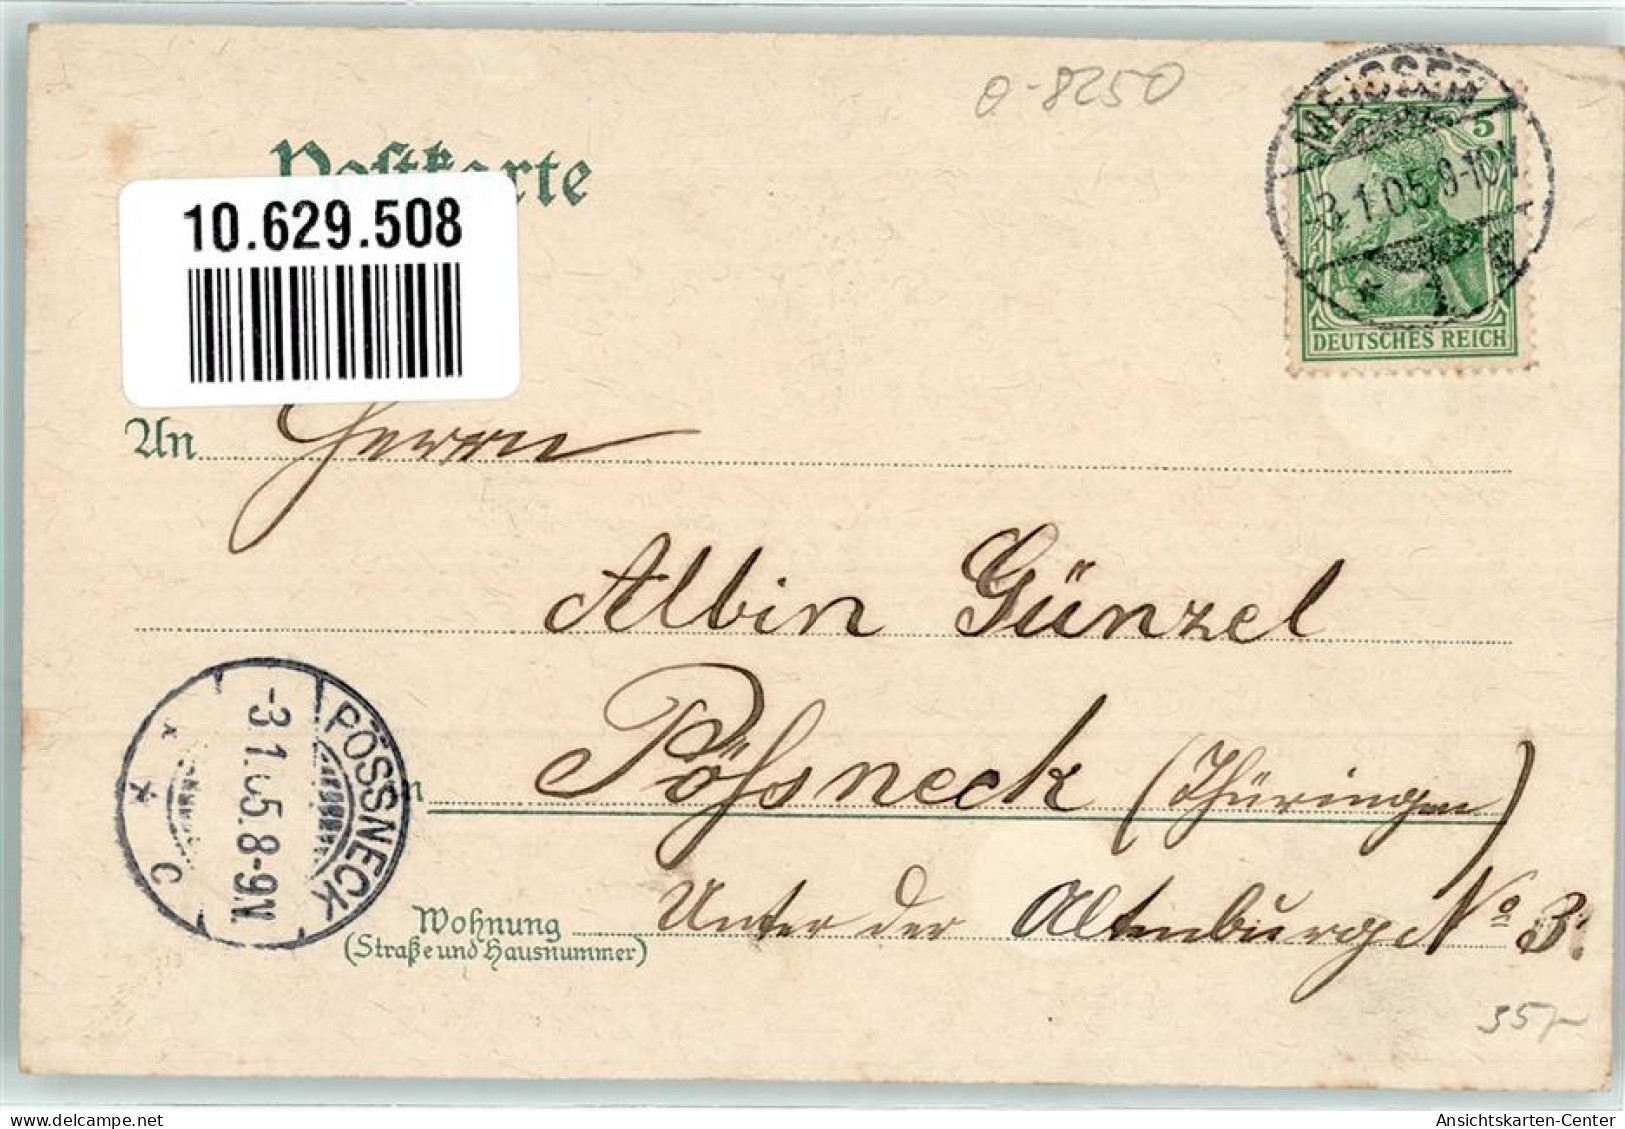 Postkarte
10.629.508
O-8250
MEISSEN
-3.1.05.9-10V.
5
DEUTSCHES REICH
An Herrn
Albin Günzel
Pößneck (Thüringen)
PÖSSNECK
-3.1.05.8-9N.
C
Wohnung Unter der Altenburg No 3.
(Straße und Hausnummer)
35,-
delcampe.net
Ansichtskarten-Center